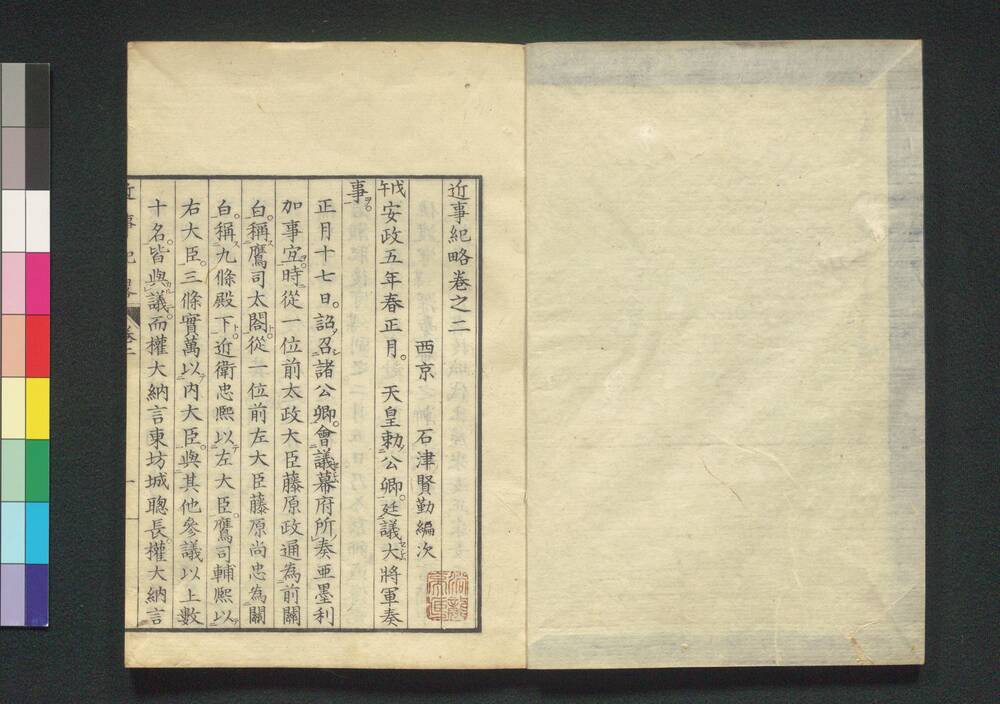 近事紀略卷之二
西京 石津賢勤編次
戊午安政五年春正月。天皇勅公卿。廷議大將軍奏
事。
正月十七日。詔召諸公卿。會議幕府所奏亜墨利
加事宜。時從一位前太政大臣藤原政通為前關
白。稱鷹司太閤。從一位前左大臣藤原尚忠為關
白。稱九條殿下。近衛忠熈以左大臣。鷹司輔熈以
右大臣。三條實萬以內大臣。與其他參議以上數
十名。皆與議。而權大納言東坊城聰長。權大納言
近事紀畧 卷二 一